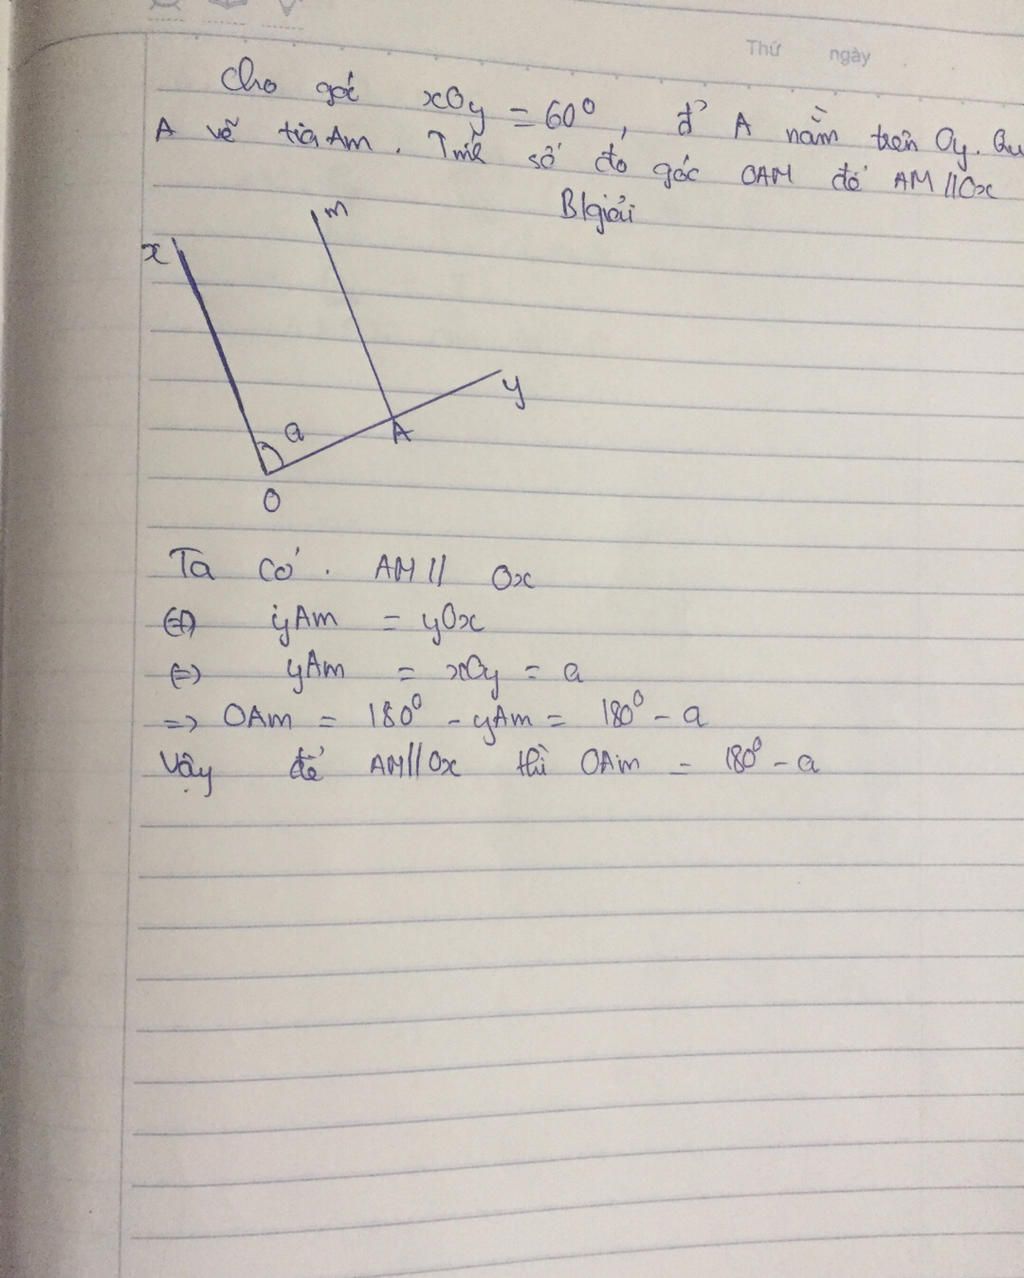 Thứ ngày
Cho góc xOy = 60⁰, đ' A nằm trên Oy. Qu
A vẽ tia Am. Tính số đo góc OAM để AM//Ox
B/giải
m
x
y
a
A
O
Ta có. AM// Ox
(=) yAm = yOx
(=) yAm = xOy = a
=> OAm = 180⁰ - yAm = 180⁰ - a
Vậy để AM//Ox thì OAm = 180⁰ - a